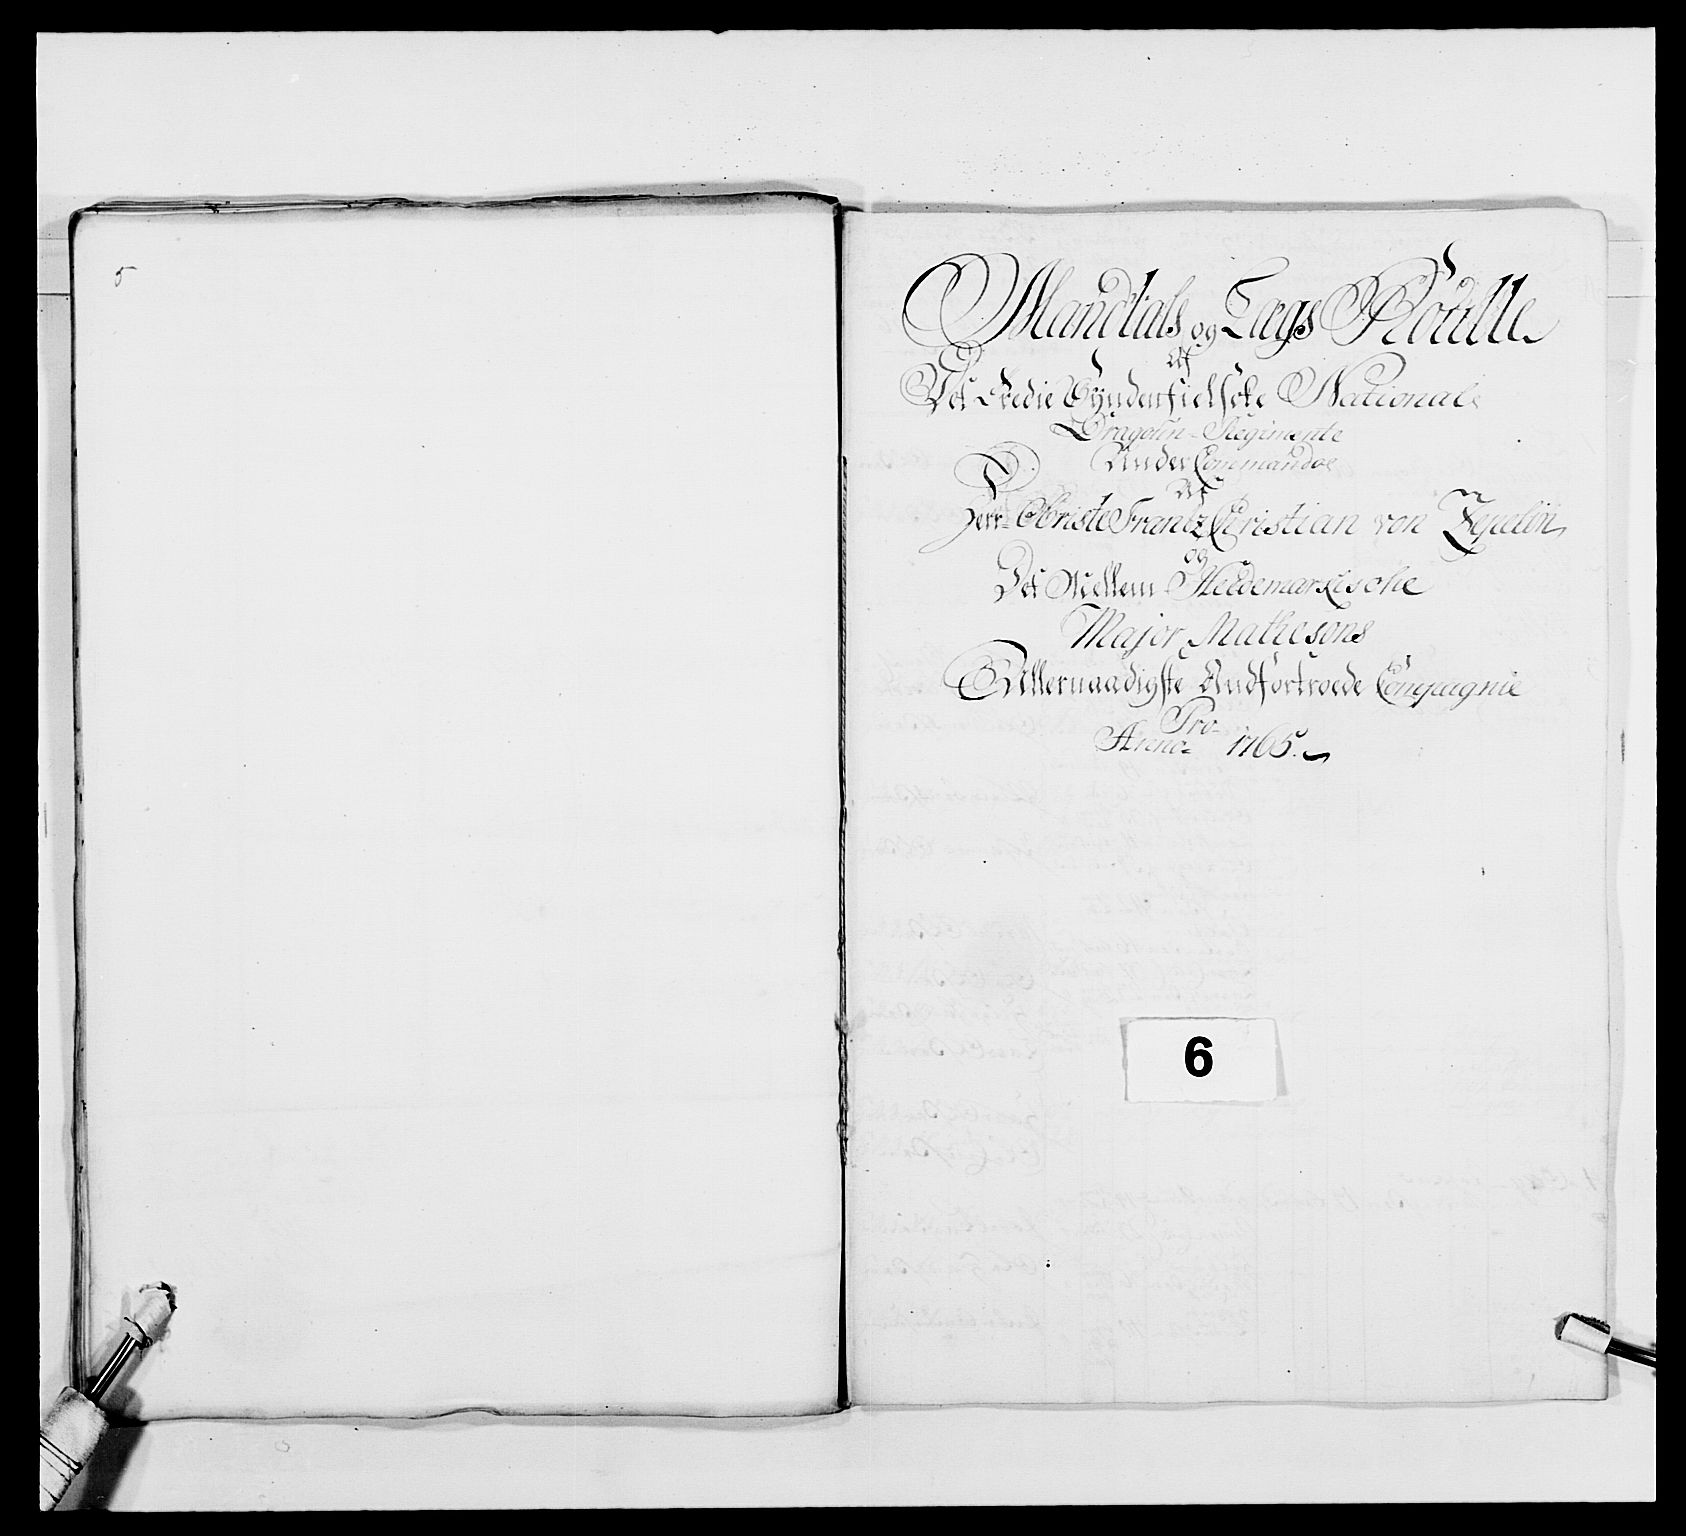 5
Mandtals og Lægs Roulle
Af
Det Tredie Syndenfielske National
Dragoun-Regimente
Under Commando
Af
Herr Obriste Frantz Christian von Zepelin
og
Det Mellem Hedemarkische
Major Mathesons
Allernaadigste Andfortroede Compagnie
Pro
Anno 1765.
6